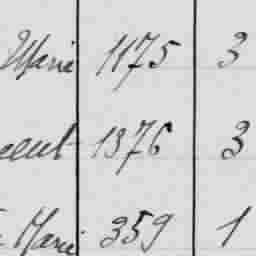 Marie 1175 3
cent 1376 3
Marie 359 1